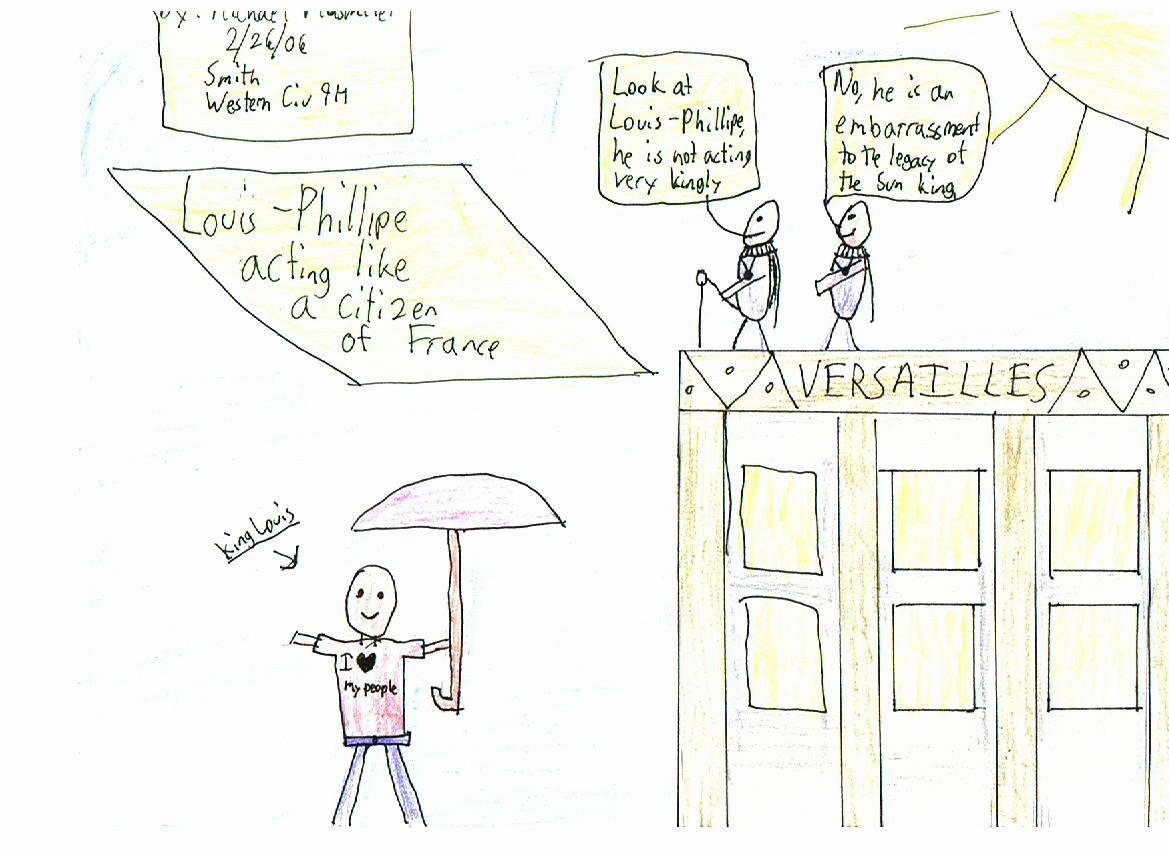 By: Michael
2/26/06
Smith
Western Civ 9H
Look at
Louis-Phillipe,
he is not acting
very kingly
No, he is an
embarrassment
to the legacy of
the Sun king
Louis-Phillipe
acting like
a citizen
of France
VERSAILLES
King Louis
I ♥
my people